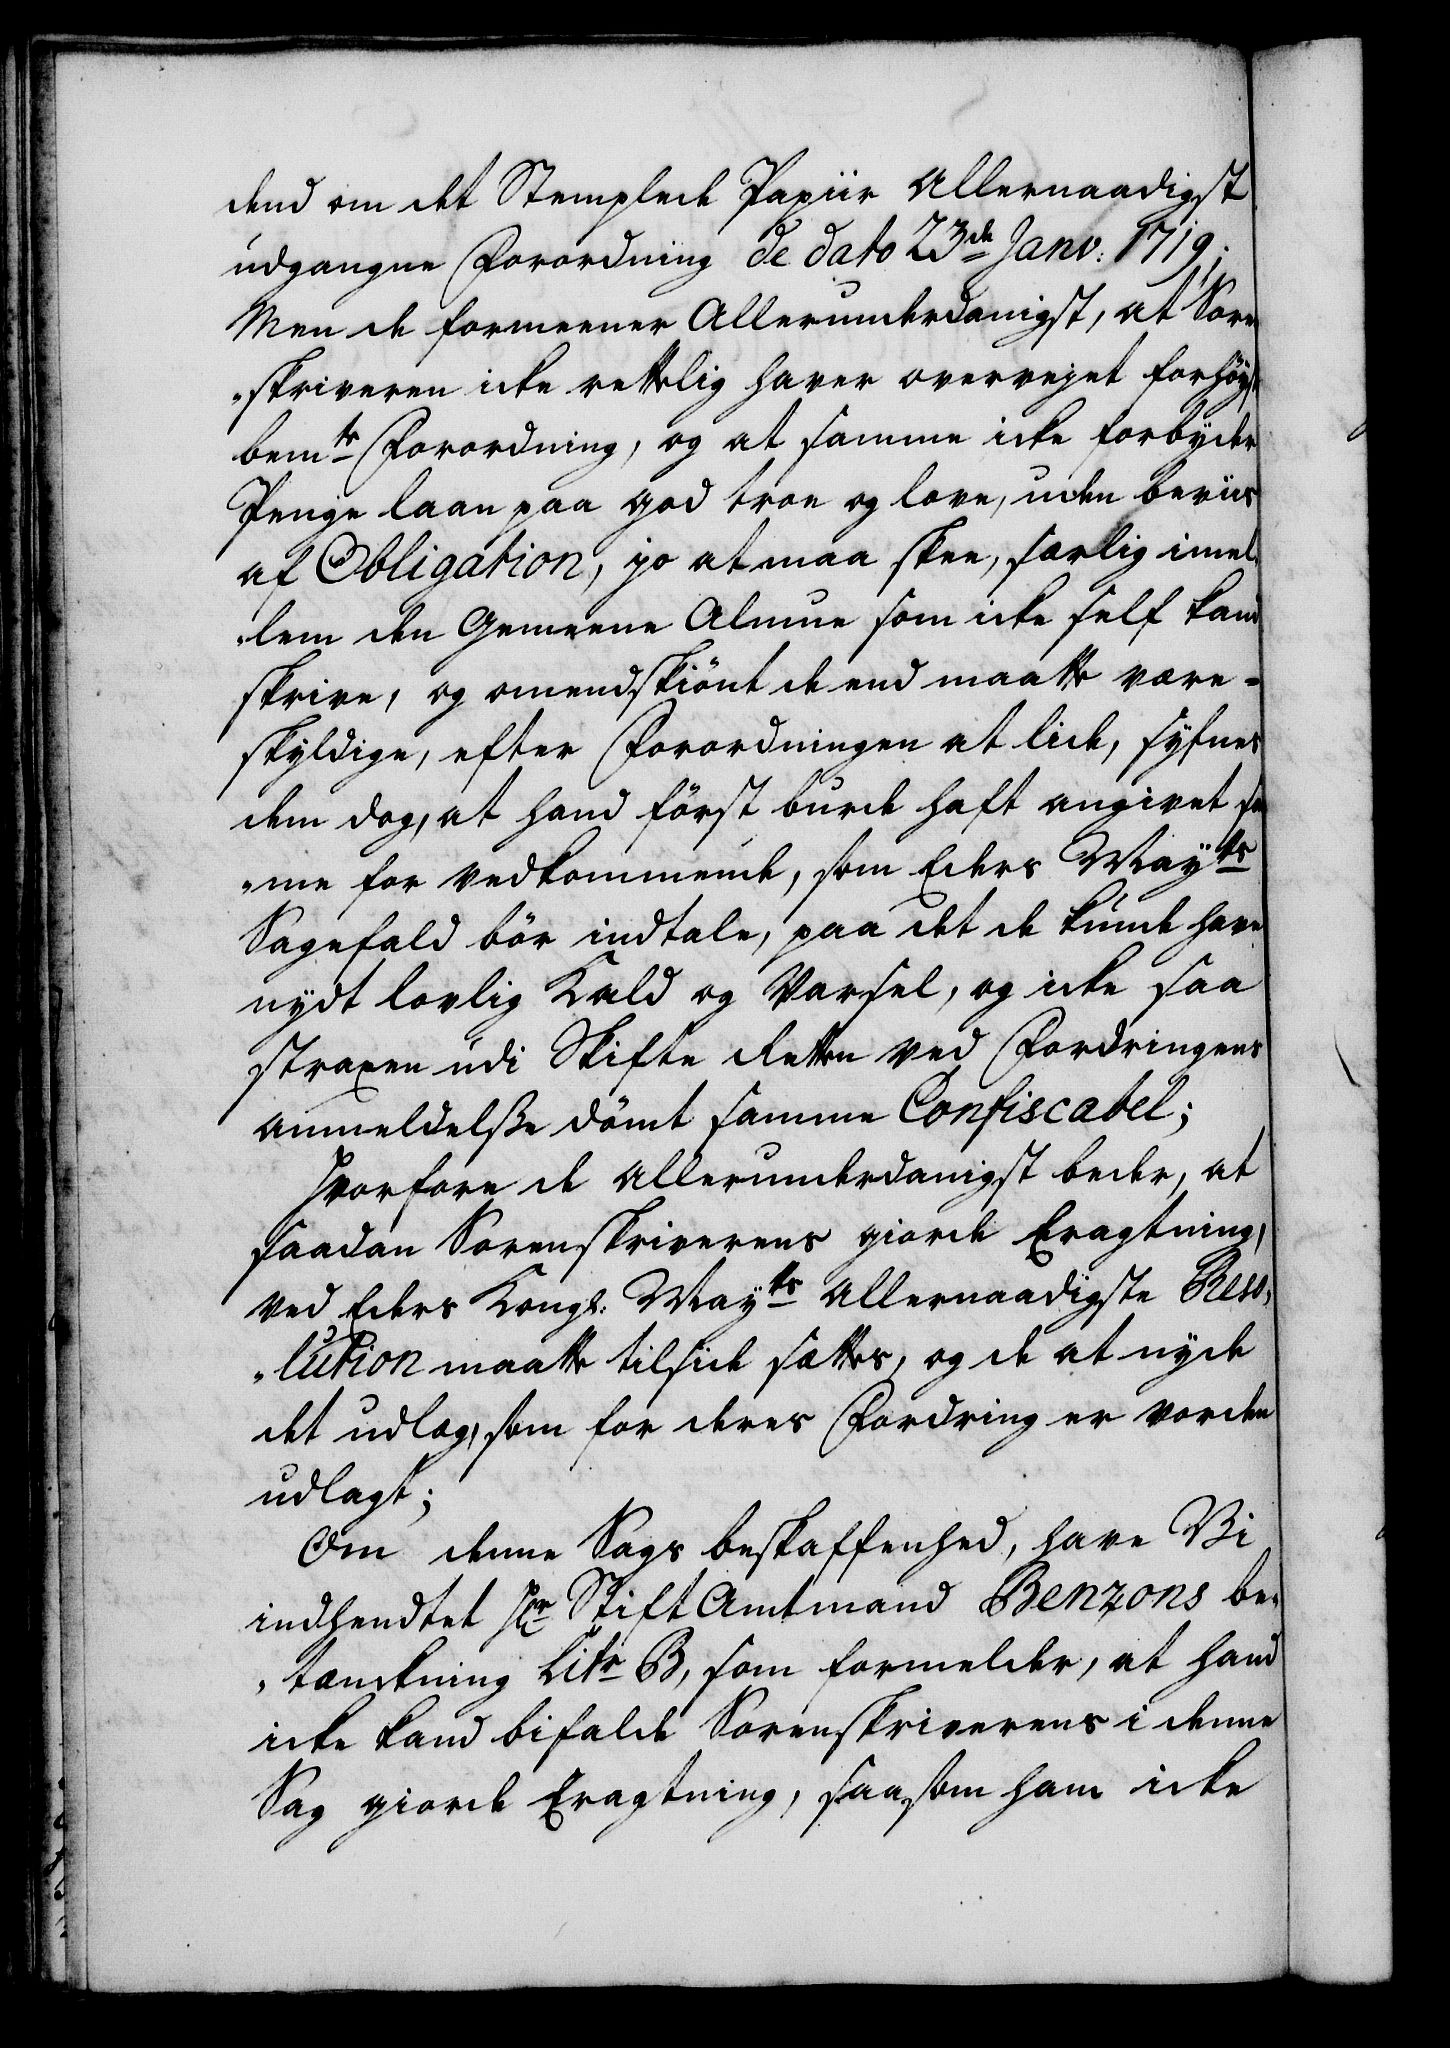 dend om det Stemplede Papiir Allernaadigst
udgangne Forordning de dato 23de Janv: 1719;
Men de formeener Allerunderdanigst, at Soren
„skriveren icke rettelig haver overvejet forhøyst
bemte Forordning, og at samme icke forbyder
Penge laan paa god troe og love, uden beviis
af Obligation, jo at maa skee, særlig imel
„lem den Gemeene Almue som icke self kand
skrive, og omendskiönt de end maatte være
skyldige, efter Forordningen at lide, sÿfnes
dem dog, at hand först burde haft angivet sa
„me for vedkommende, som Eders Mayts
Sagefald bör indtale, paa det de kunde have
nydt lovlig Kald og Varsel, og icke saa
straxen udi Skifte Retten ved Fordringens
anmeldelsße dömt samme Confiscabel;
Hvorfore de allerunderdanigst beder, at
saadan Sorenskriverens giorde Eragtning,
ved Eders Kongl: Maytts Allernaadigste Reso,
„lution maatte tilside sættes, og de at nyde
det udlæg, som for deres Fordring er vorden
udlagt;
Om denne Sags beskaffenhed, have Vi
indhendtet Hr Stift Amtmand Benzons be,
„tænckning Litr B, som formelder, at hand
icke kand bifalde Sorenskriverens i denne
Sag giorde Eragtning, saasom ham icke